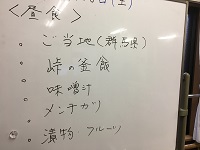 (土)
<昼食>
・ご当地(群馬県)
・峠の釜飯
・味噌汁
・メンチカツ
・漬物 フルーツ